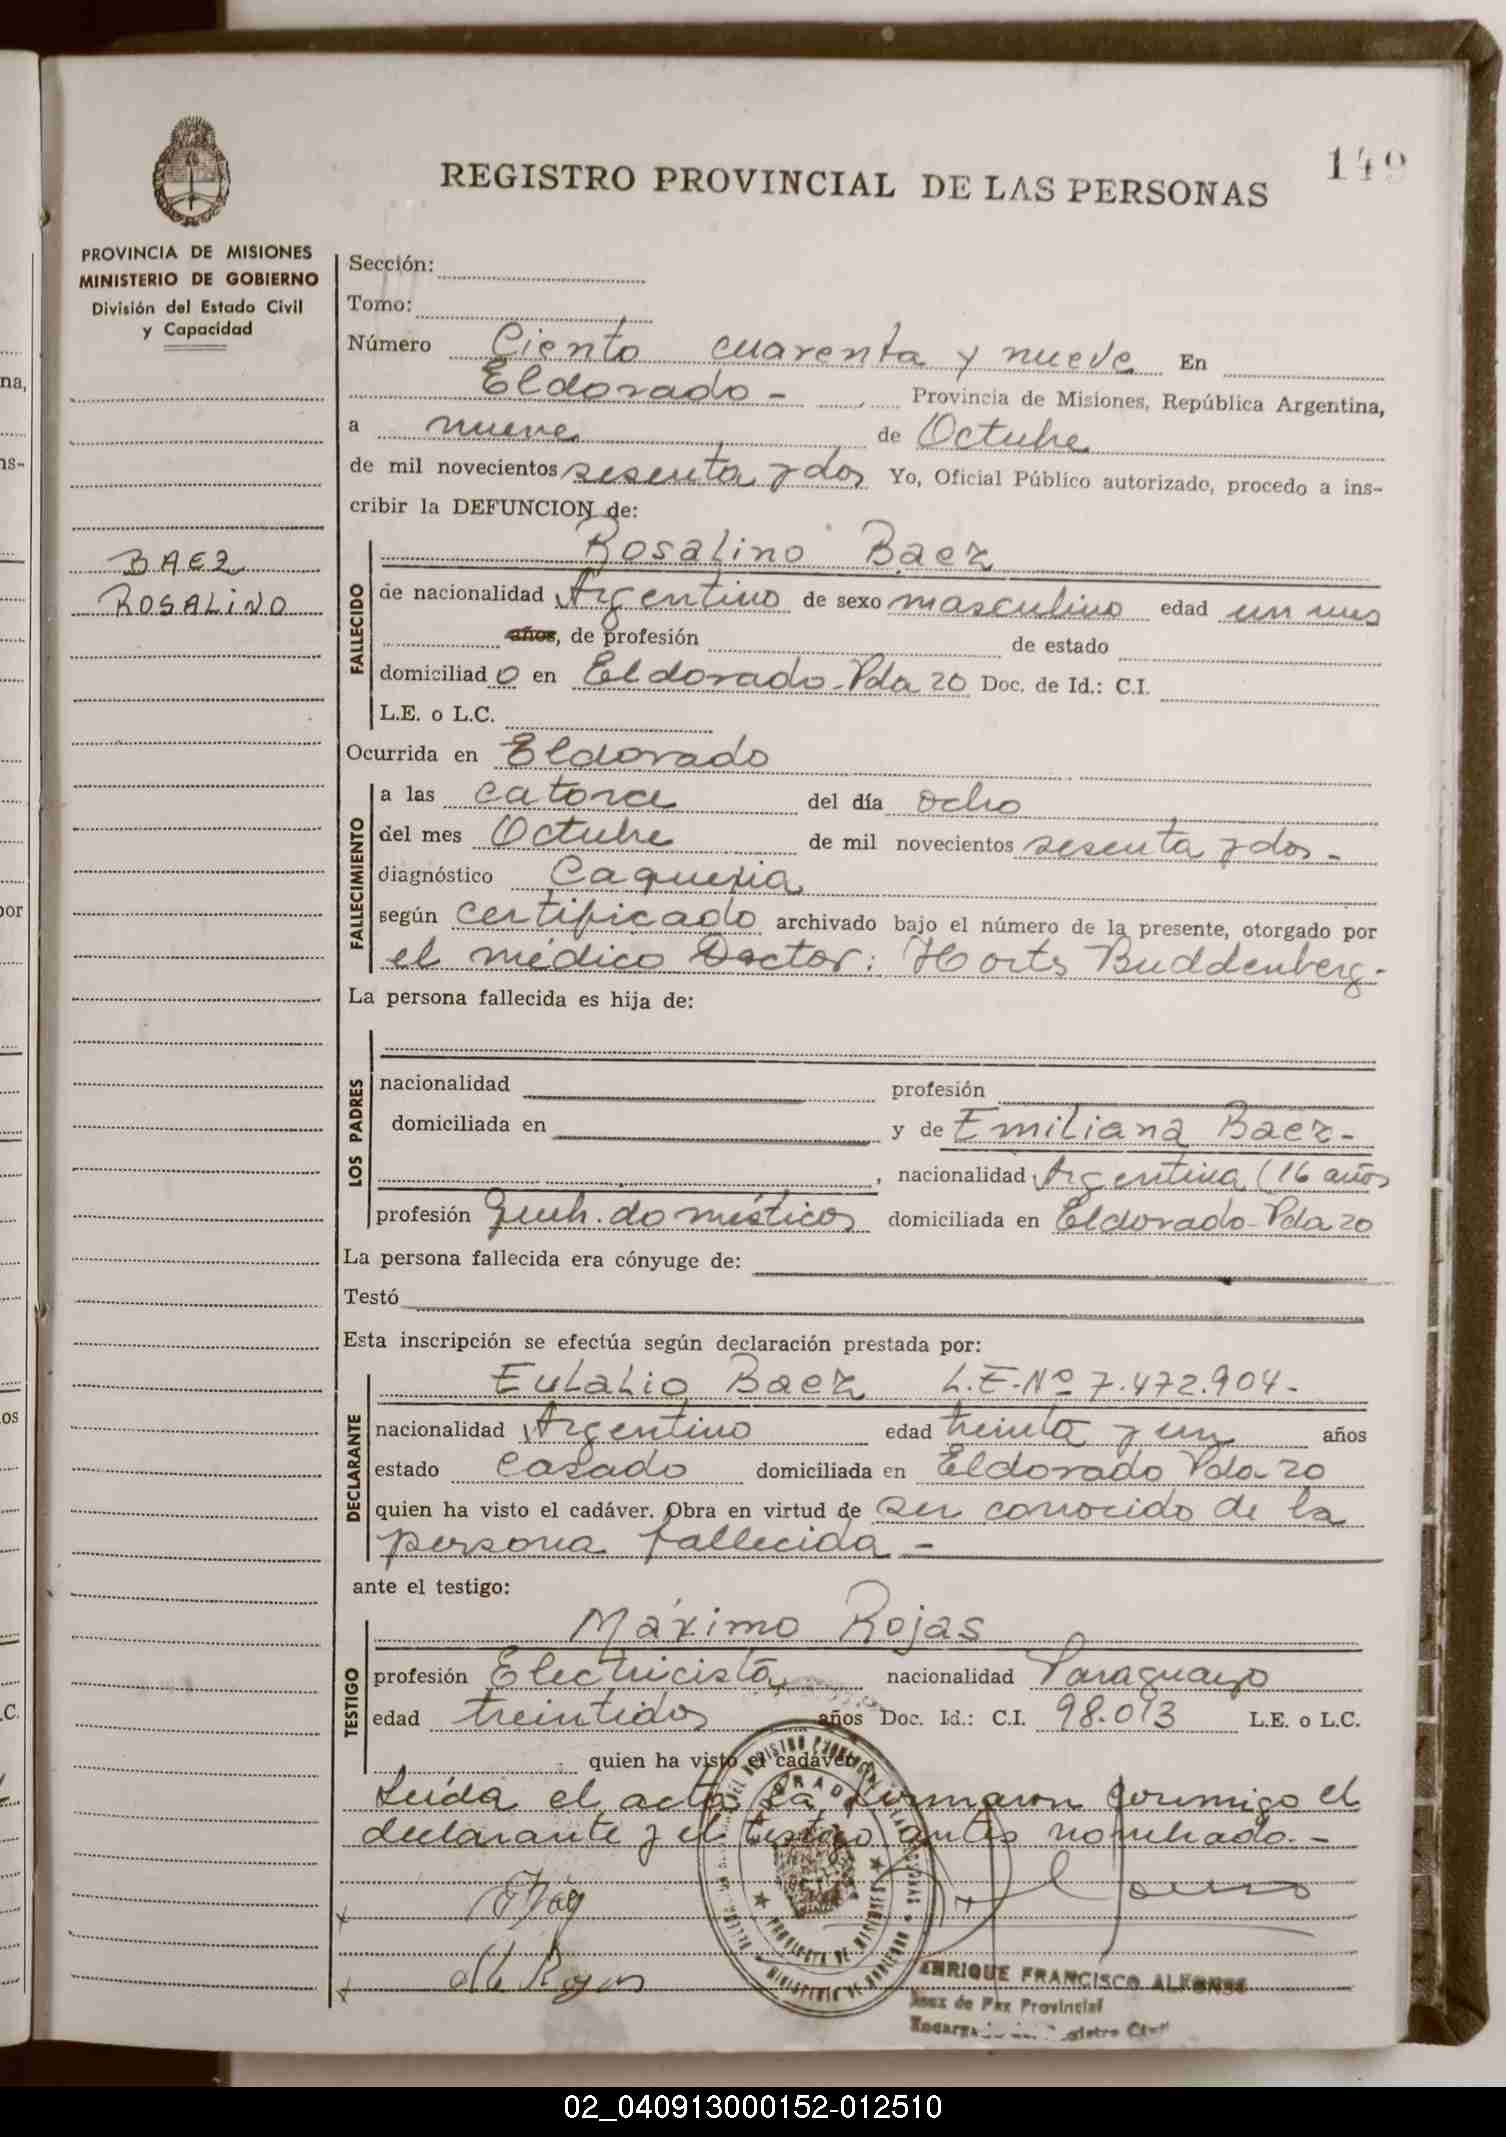 149
REGISTRO PROVINCIAL DE LAS PERSONAS
PROVINCIA DE MISIONES
MINISTERIO DE GOBIERNO
División del Estado Civil
y Capacidad
BAEZ
ROSALINO
Sección:
Tomo:
Número Ciento cuarenta y nueve En
Eldorado - Provincia de Misiones, República Argentina,
a nueve de Octubre
de mil novecientos sesenta y dos Yo, Oficial Público autorizado, procedo a ins-
cribir la DEFUNCION de:
FALLECIDO
Rosalino Baez
de nacionalidad Argentino de sexo masculino edad un mes
años, de profesión de estado
domiciliado en Eldorado-Pda 20 Doc. de Id.: C.I.
L.E. o L.C.
Ocurrida en Eldorado
FALLECIMIENTO
a las catorce del día ocho
del mes Octubre de mil novecientos sesenta y dos-
diagnóstico Caquexia
según certificado archivado bajo el número de la presente, otorgado por
el médico Doctor: Horts Buddenberg-
La persona fallecida es hija de:
LOS PADRES
nacionalidad profesión
domiciliada en y de Emiliana Baez-
, nacionalidad Argentina (16 años
profesión Queh. domésticos domiciliada en Eldorado-Pda 20
La persona fallecida era cónyuge de:
Testó
Esta inscripción se efectúa según declaración prestada por:
DECLARANTE
Eulalio Baez L.E.Nº 7.472.904-
nacionalidad Argentino edad treinta y un años
estado Casado domiciliada en Eldorado Pda-20
quien ha visto el cadáver. Obra en virtud de ser conocido de la
persona fallecida -
ante el testigo:
TESTIGO
Máximo Rojas
profesión Electricista nacionalidad Paraguayo
edad treintidos años Doc. Id.: C.I. 98.013 L.E. o L.C.
quien ha visto el cadáver
Leída el acta la firmaron conmigo el
declarante y el testigo antes nombrado.-
M Rojas
PROVINCIA DE MISIONES
MINISTERIO DE GOBIERNO
ENRIQUE FRANCISCO ALFONSO
Juez de Paz Provincial
02_040913000152-012510